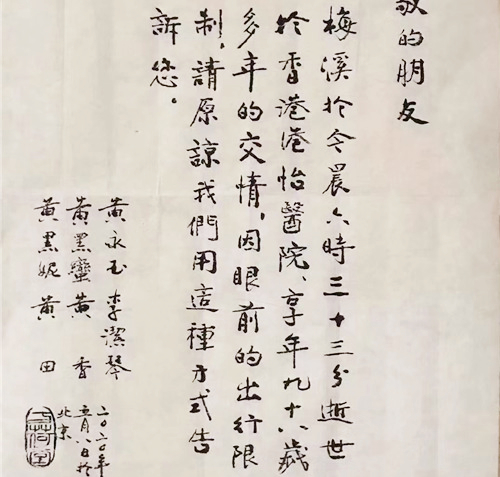 敬的朋友
梅溪於今晨六時三十三分逝世
於香港港怡醫院、享年九十八歲
多年的交情，因眼前的出行限
制，請原諒我們用這種方式告
訴您。
黃永玉 李潔琴
黃黑蠻 黃香
黃黑妮 黃田
二〇二〇年
五月八日於
北京